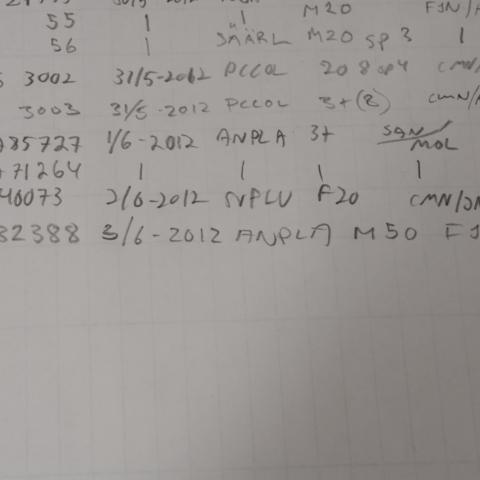 55 1 " 1 M20 FJN/
56 1 SMÄRL M20 SP 3 1
3002 31/5-2012 PCCOL 20 8 sp4 CMN/
3003 31/5-2012 PCCOL 3+(8) CMN/
85727 1/6-2012 ANPLA 3+ SGN/MOL
71264 1 1 1 1
46073 2/6-2012 SVPLU F20 CMN/
32388 3/6-2012 ANPLA M50 FJ